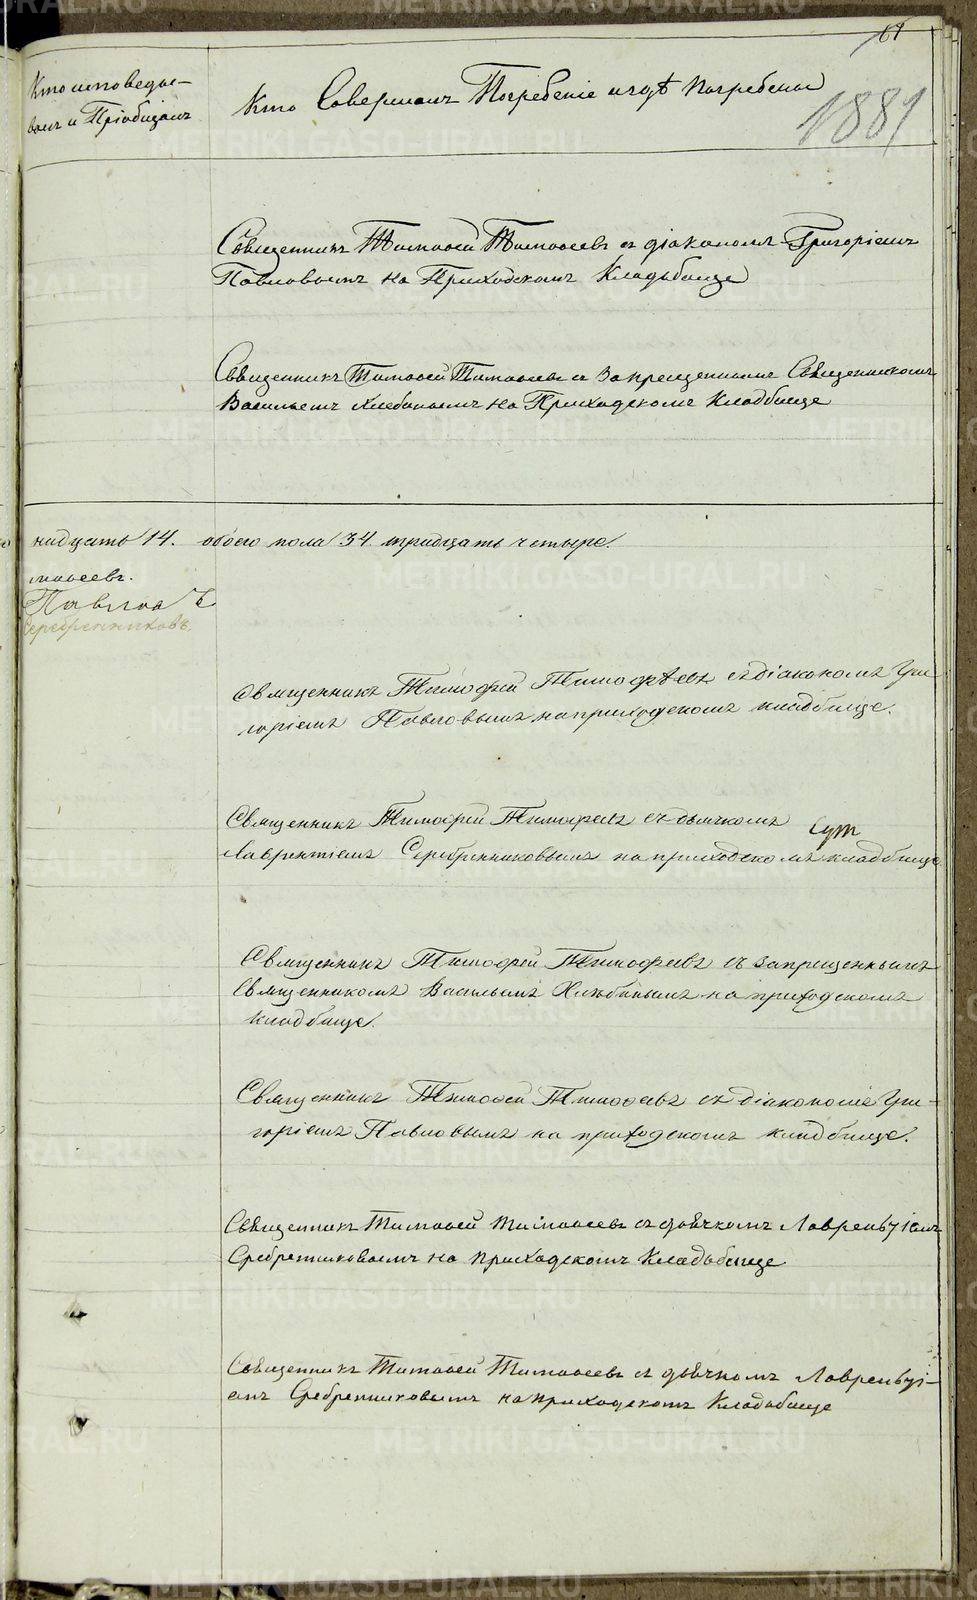 61
Кто исповеды-
валъ и Пріобщалъ
Кто Совершалъ Погребеніе и гдѣ Погребены
1881
Священникъ Тимоѳей Тимоѳеевъ съ діакономъ Григоріемъ
Павловымъ на Приходскомъ Кладьбище
Священникъ Тимоѳей Тимоѳеевъ съ Запрещеннымъ Священникомъ
Васильемъ Хлебинымъ на Приходскомъ Кладбище
надцать 14. обоего пола 34 тридцать четыре.
моѳеевъ.
Павловъ
Серебренниковъ.
Священникъ Тимофей Тимофѣевъ съ діакономъ Гри
горіемъ Павловымъ на приходскомъ кладбище.
Священникъ Тимофей Тимофеевъ съ дьячкомъ
Лаврентіемъ Серебренниковымъ на приходскомъ кладбище
Священникъ Тимофей Тимофеевъ съ запрещеннымъ
Священникомъ Васильемъ Хлѣбинымъ на приходскомъ
кладбище.
Священникъ Тимоѳей Тимоѳеевъ съ діакономъ Гри-
горіемъ Павловымъ на приходскомъ кладбище.
Священникъ Тимоѳей Тимоѳеевъ съ дьячкомъ Лаврентіемъ
Сребренниковымъ на приходскомъ Кладьбище
Священникъ Тимоѳей Тимоѳеевъ съ дьячкомъ Лаврентьі-
емъ Сребренниковымъ на приходскомъ Кладьбище
METRIKI.GASO-URAL.RU